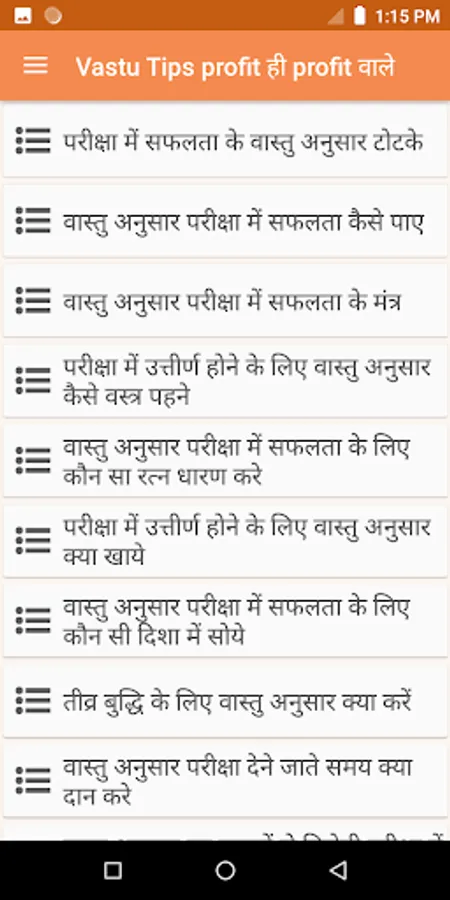 1:15 PM
Vastu Tips profit ही profit वाले
परीक्षा में सफलता के वास्तु अनुसार टोटके
वास्तु अनुसार परीक्षा में सफलता कैसे पाए
वास्तु अनुसार परीक्षा में सफलता के मंत्र
परीक्षा में उत्तीर्ण होने के लिए वास्तु अनुसार
कैसे वस्त्र पहने
वास्तु अनुसार परीक्षा में सफलता के लिए
कौन सा रत्न धारण करे
परीक्षा में उत्तीर्ण होने के लिए वास्तु अनुसार
क्या खाये
वास्तु अनुसार परीक्षा में सफलता के लिए
कौन सी दिशा में सोये
तीव्र बुद्धि के लिए वास्तु अनुसार क्या करें
वास्तु अनुसार परीक्षा देने जाते समय क्या
दान करे